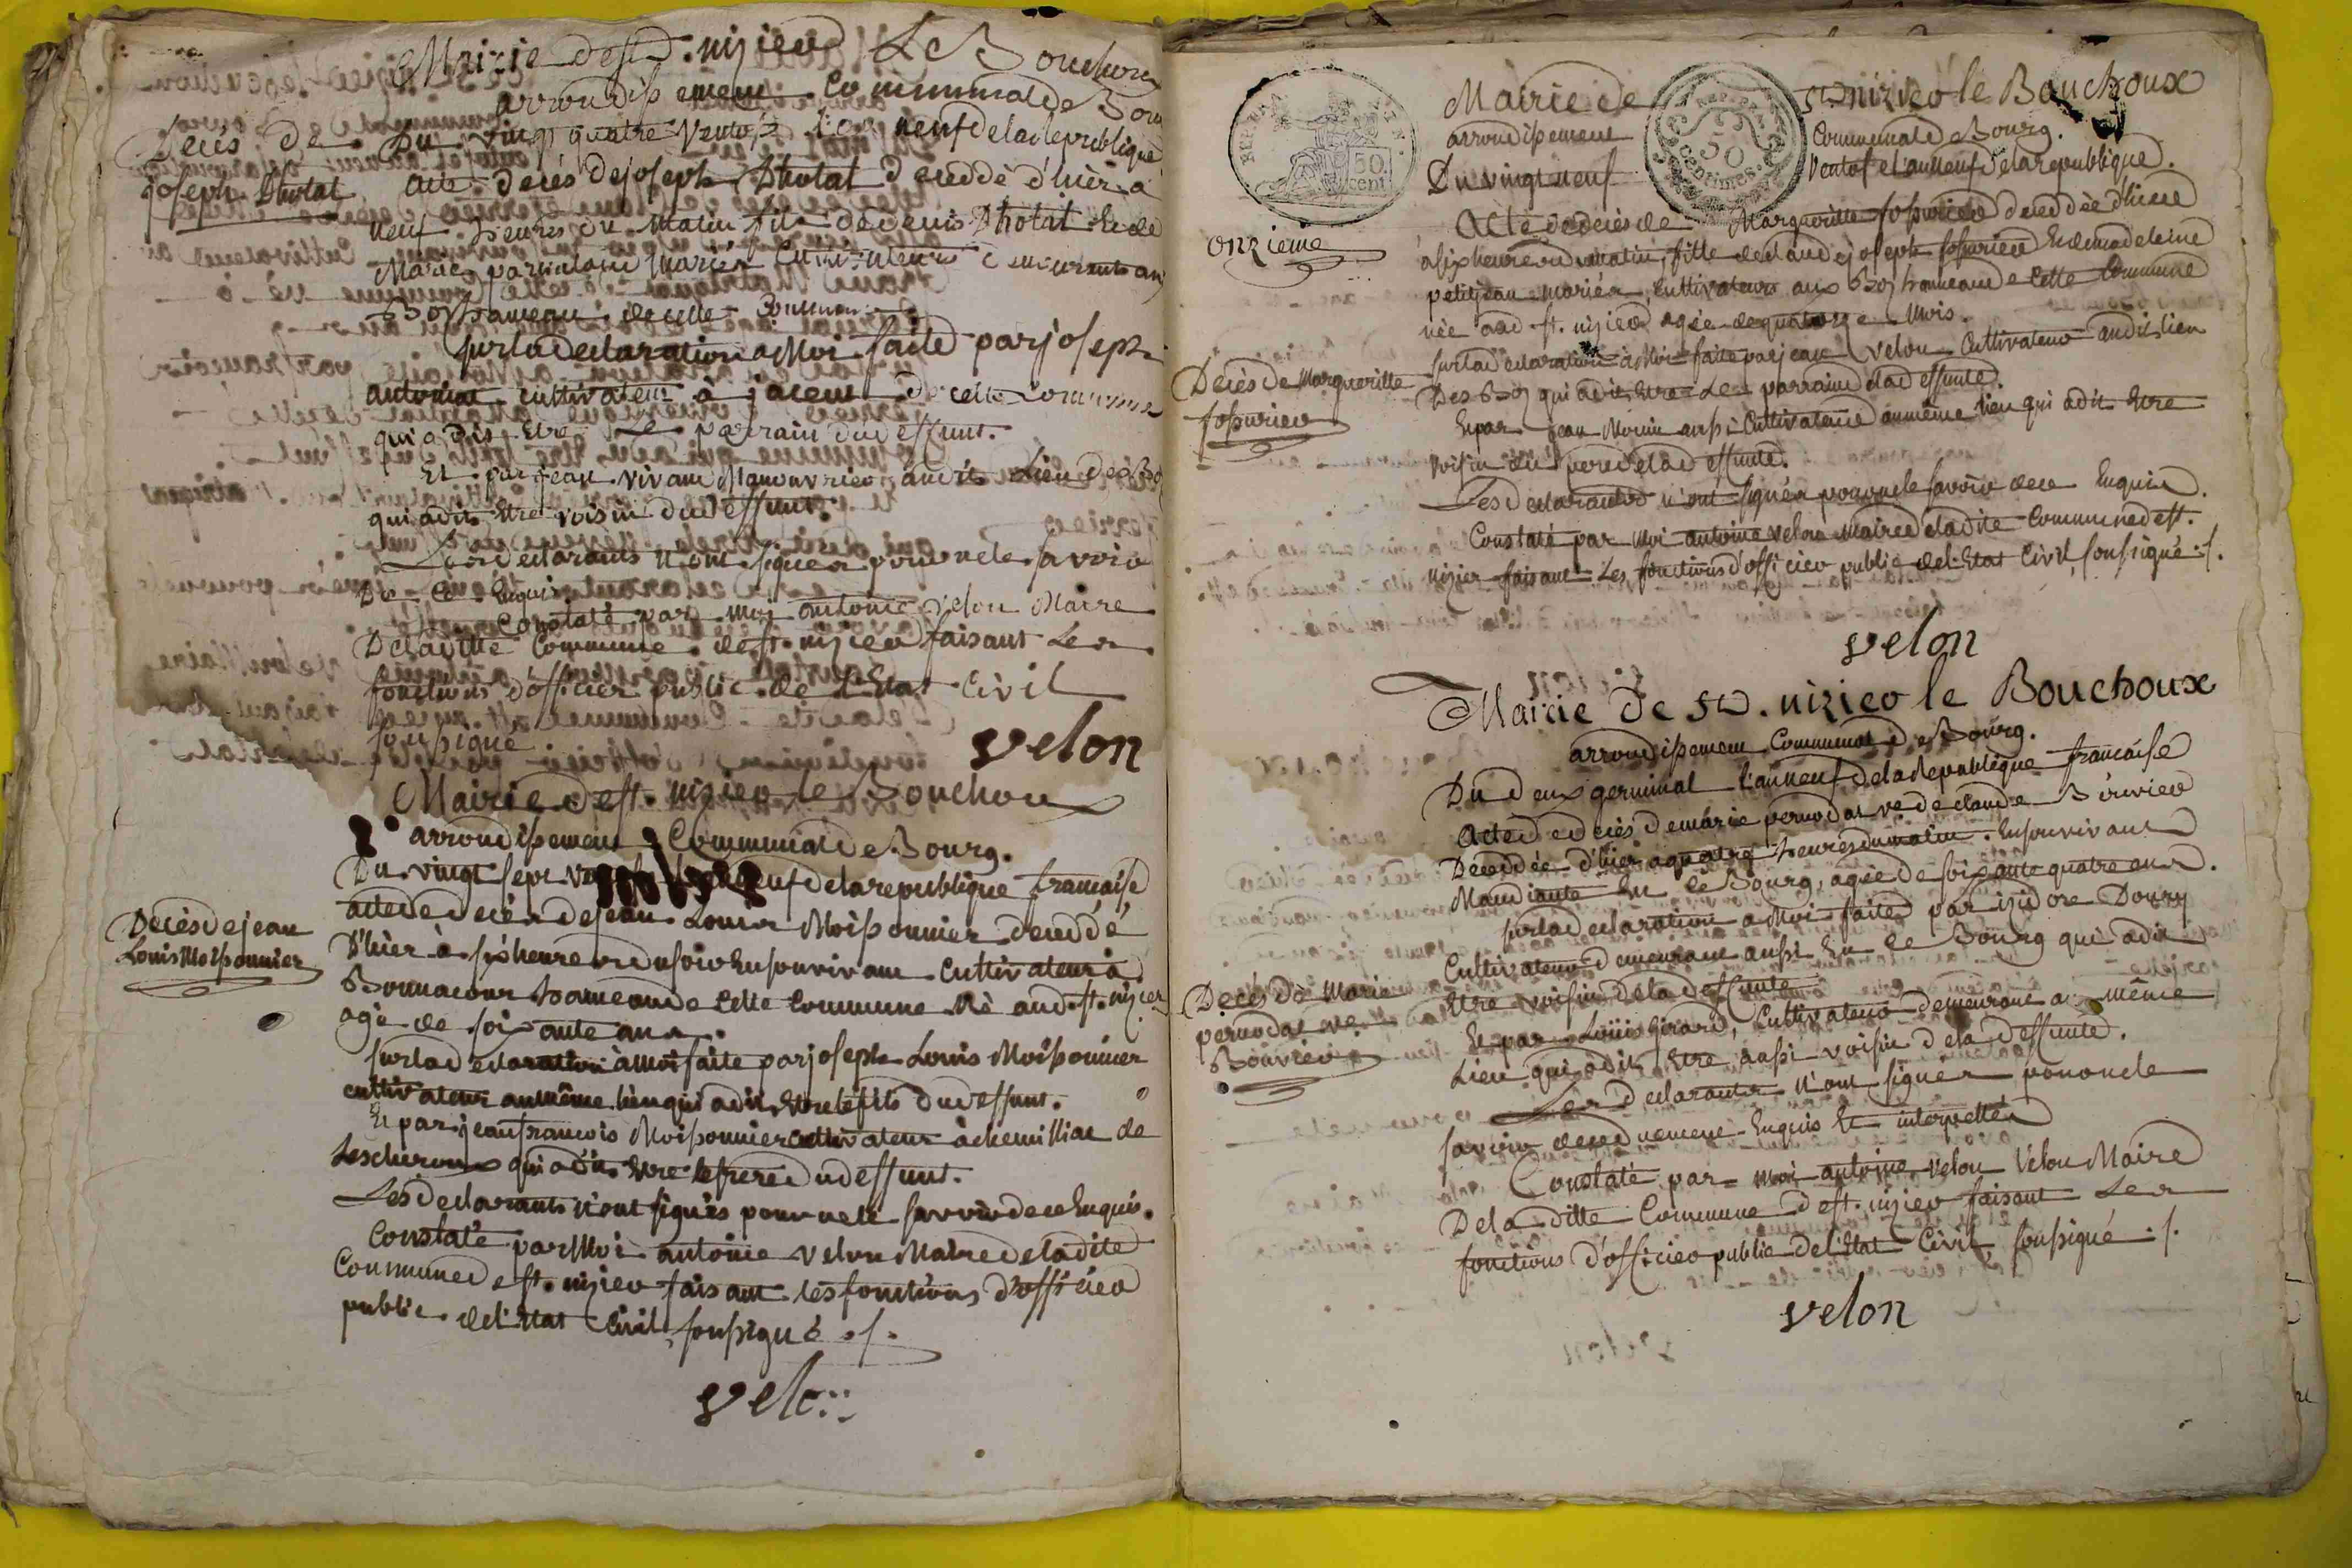 Mairie de st. nizier Le Bouchoux
arrondissement Communal de Bourg
Décès de
joseph Dhotat
Du vingt quatre Ventose l'an neuf de la republique
acte de decés de joseph Dhotat deceddé d'hier a
neuf heures du matin fils de denis Dhotat Et de
Marie mariés Cultivateurs demeurants au
Boy hameau de cette Commune
sur la declaration a Moi faite par joseph
antoinat cultivateur à de cette commune
qui a dit Etre Le parrain du deffunt.
Et par jean vivant Manouvrier audit Lieu des Boy
qui a dit Etre voisin du deffunt.
Les declarants n'ont signés pour ne le savoir
De ce Enquis.
Constaté par moi antoine velon Maire
De la ditte Commune de st. nizier faisant Les
fonctions d'officier public de l'Etat Civil
soussigné
velon
Mairie de st. nizier le Bouchoux
arrondissement Communal de Bourg.
Du vingt sept l'an neuf de la republique francaise
Decés de jean
Louis Moissonnier
acte de decés de jean Louis Moissonnier deceddé
D'hier à six heures du soir En son vivant Cultivateur à
Bonnacour hameau de Cette Commune Né aud. st. nizier
agé de soixante ans.
sur la declaration à moi faite par joseph Louis Moissonnier
cultivateur au même lieu qui a dit Etre le fils du deffunt.
Et par jean francois Moissonnier cultivateur à chemilliat de
Lescheroux qui a dit Etre le frere du deffunt.
Les declarants n'ont signés pour ne le savoir de ce Enquis.
Constaté par Moi antoine velon Maire de la dite
Commune de st. nizier faisant les fonctions d'officier
public de l'Etat Civil soussigné ./.
velon
Mairie de st nizier le Bouchoux
arrondissement Communal de Bourg.
REP. FRA.
50 cent.
REP. FRA.
50
centimes
Du vingt neuf Ventose l'an neuf de la republique.
onzieme
Acte de decés de Margueritte fossurier deceddée d'hier
à six heures du matin, fille de claude joseph fossurier Et de madeleine
petitjean mariés, Cultivateurs aux Boy hameau de Cette Commune
née aud st. nizier agée de quatorze mois.
Decés de Margueritte
fossurier
sur la declaration à Moi faite par jean velon Cultivateur audit lieu
Des Boy qui a dit Etre Le parrain de la deffunte.
Et par jean Morin aussi Cultivateur au même lieu qui a dit Etre
voisin du pere de la deffunte.
Les declarants n'ont signés pour ne le savoir de ce Enquis.
Constaté par Moi antoine velon Maire de la dite Commune de st.
nizier faisant Les fonctions d'officier public de l'Etat Civil, soussigné ./.
velon
Mairie de st. nizier le Bouchoux
arrondissement Communal de Bourg.
Du deux germinal l'an neuf de la Republique francaise
Acte de decés de marie pernodat ve. de claude Bouvier
Deceddée d'hier a quatre heures du matin. En son vivant
Mandiante En ce Bourg, agée de soixante quatre ans.
sur la declaration a Moi faite par izidore Doury
Cultivateur demeurant aussi En ce Bourg qui a dit
Decés de Marie
pernodat ve.
Bouvier
Etre voisin de la deffunte
Et par Louis Girard, Cultivateur demeurant au même
Lieu qui a dit Etre aussi voisin de la deffunte.
Les declarants n'ont signés pour ne le
savoir de ce duement Enquis Et interpellés
Constaté par Moi antoine velon Velon Maire
De la ditte Commune de st. nizier faisant Les
fonctions d'officier public de l'Etat Civil, soussigné ./.
velon